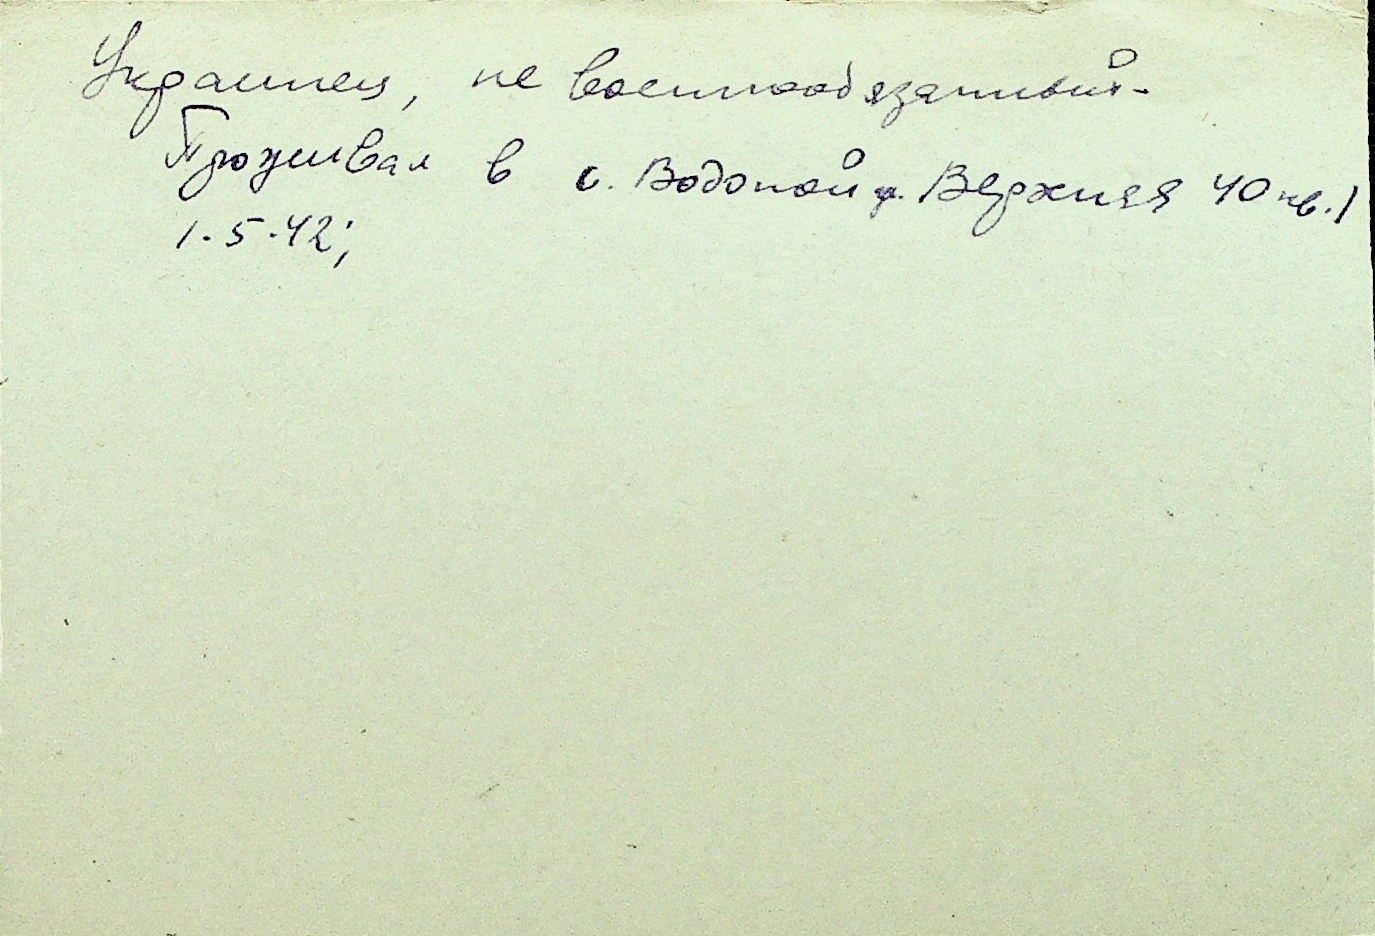 Украинец, не военнообязанный-
Проживал в с. Водопой у. Верхняя 40 кв. 1
1.5.42;